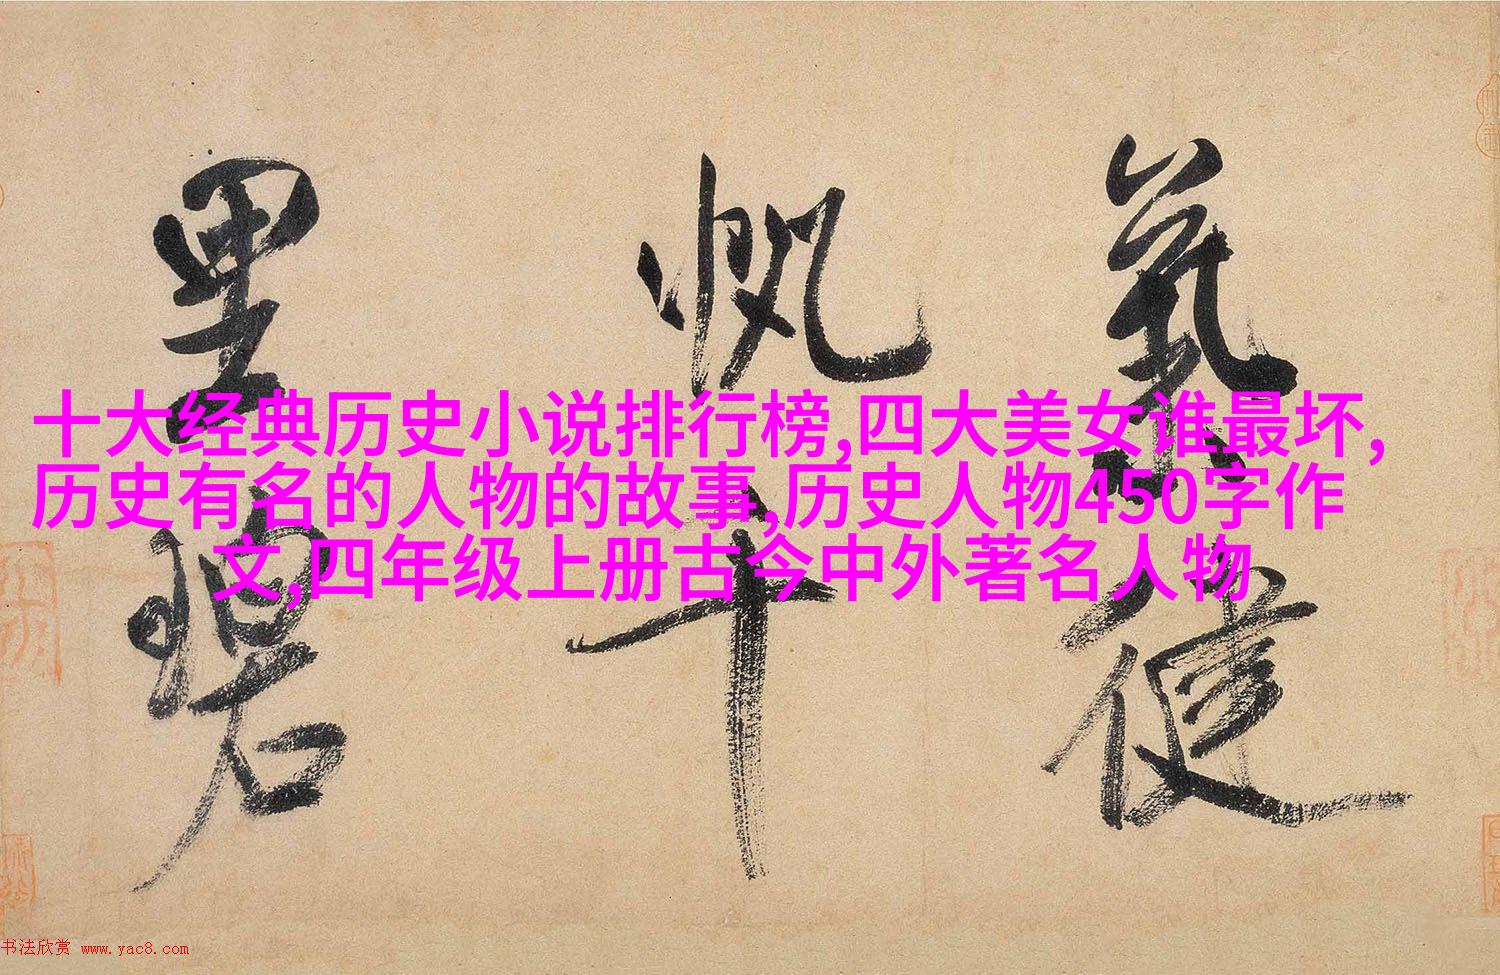 十大经典历史小说排行榜,四大美女谁最坏,
历史有名的人物的故事,历史人物450字作
文,四年级上册古今中外著名人物
氣健
帆千
里碧
书法欣赏 www.yac8.com